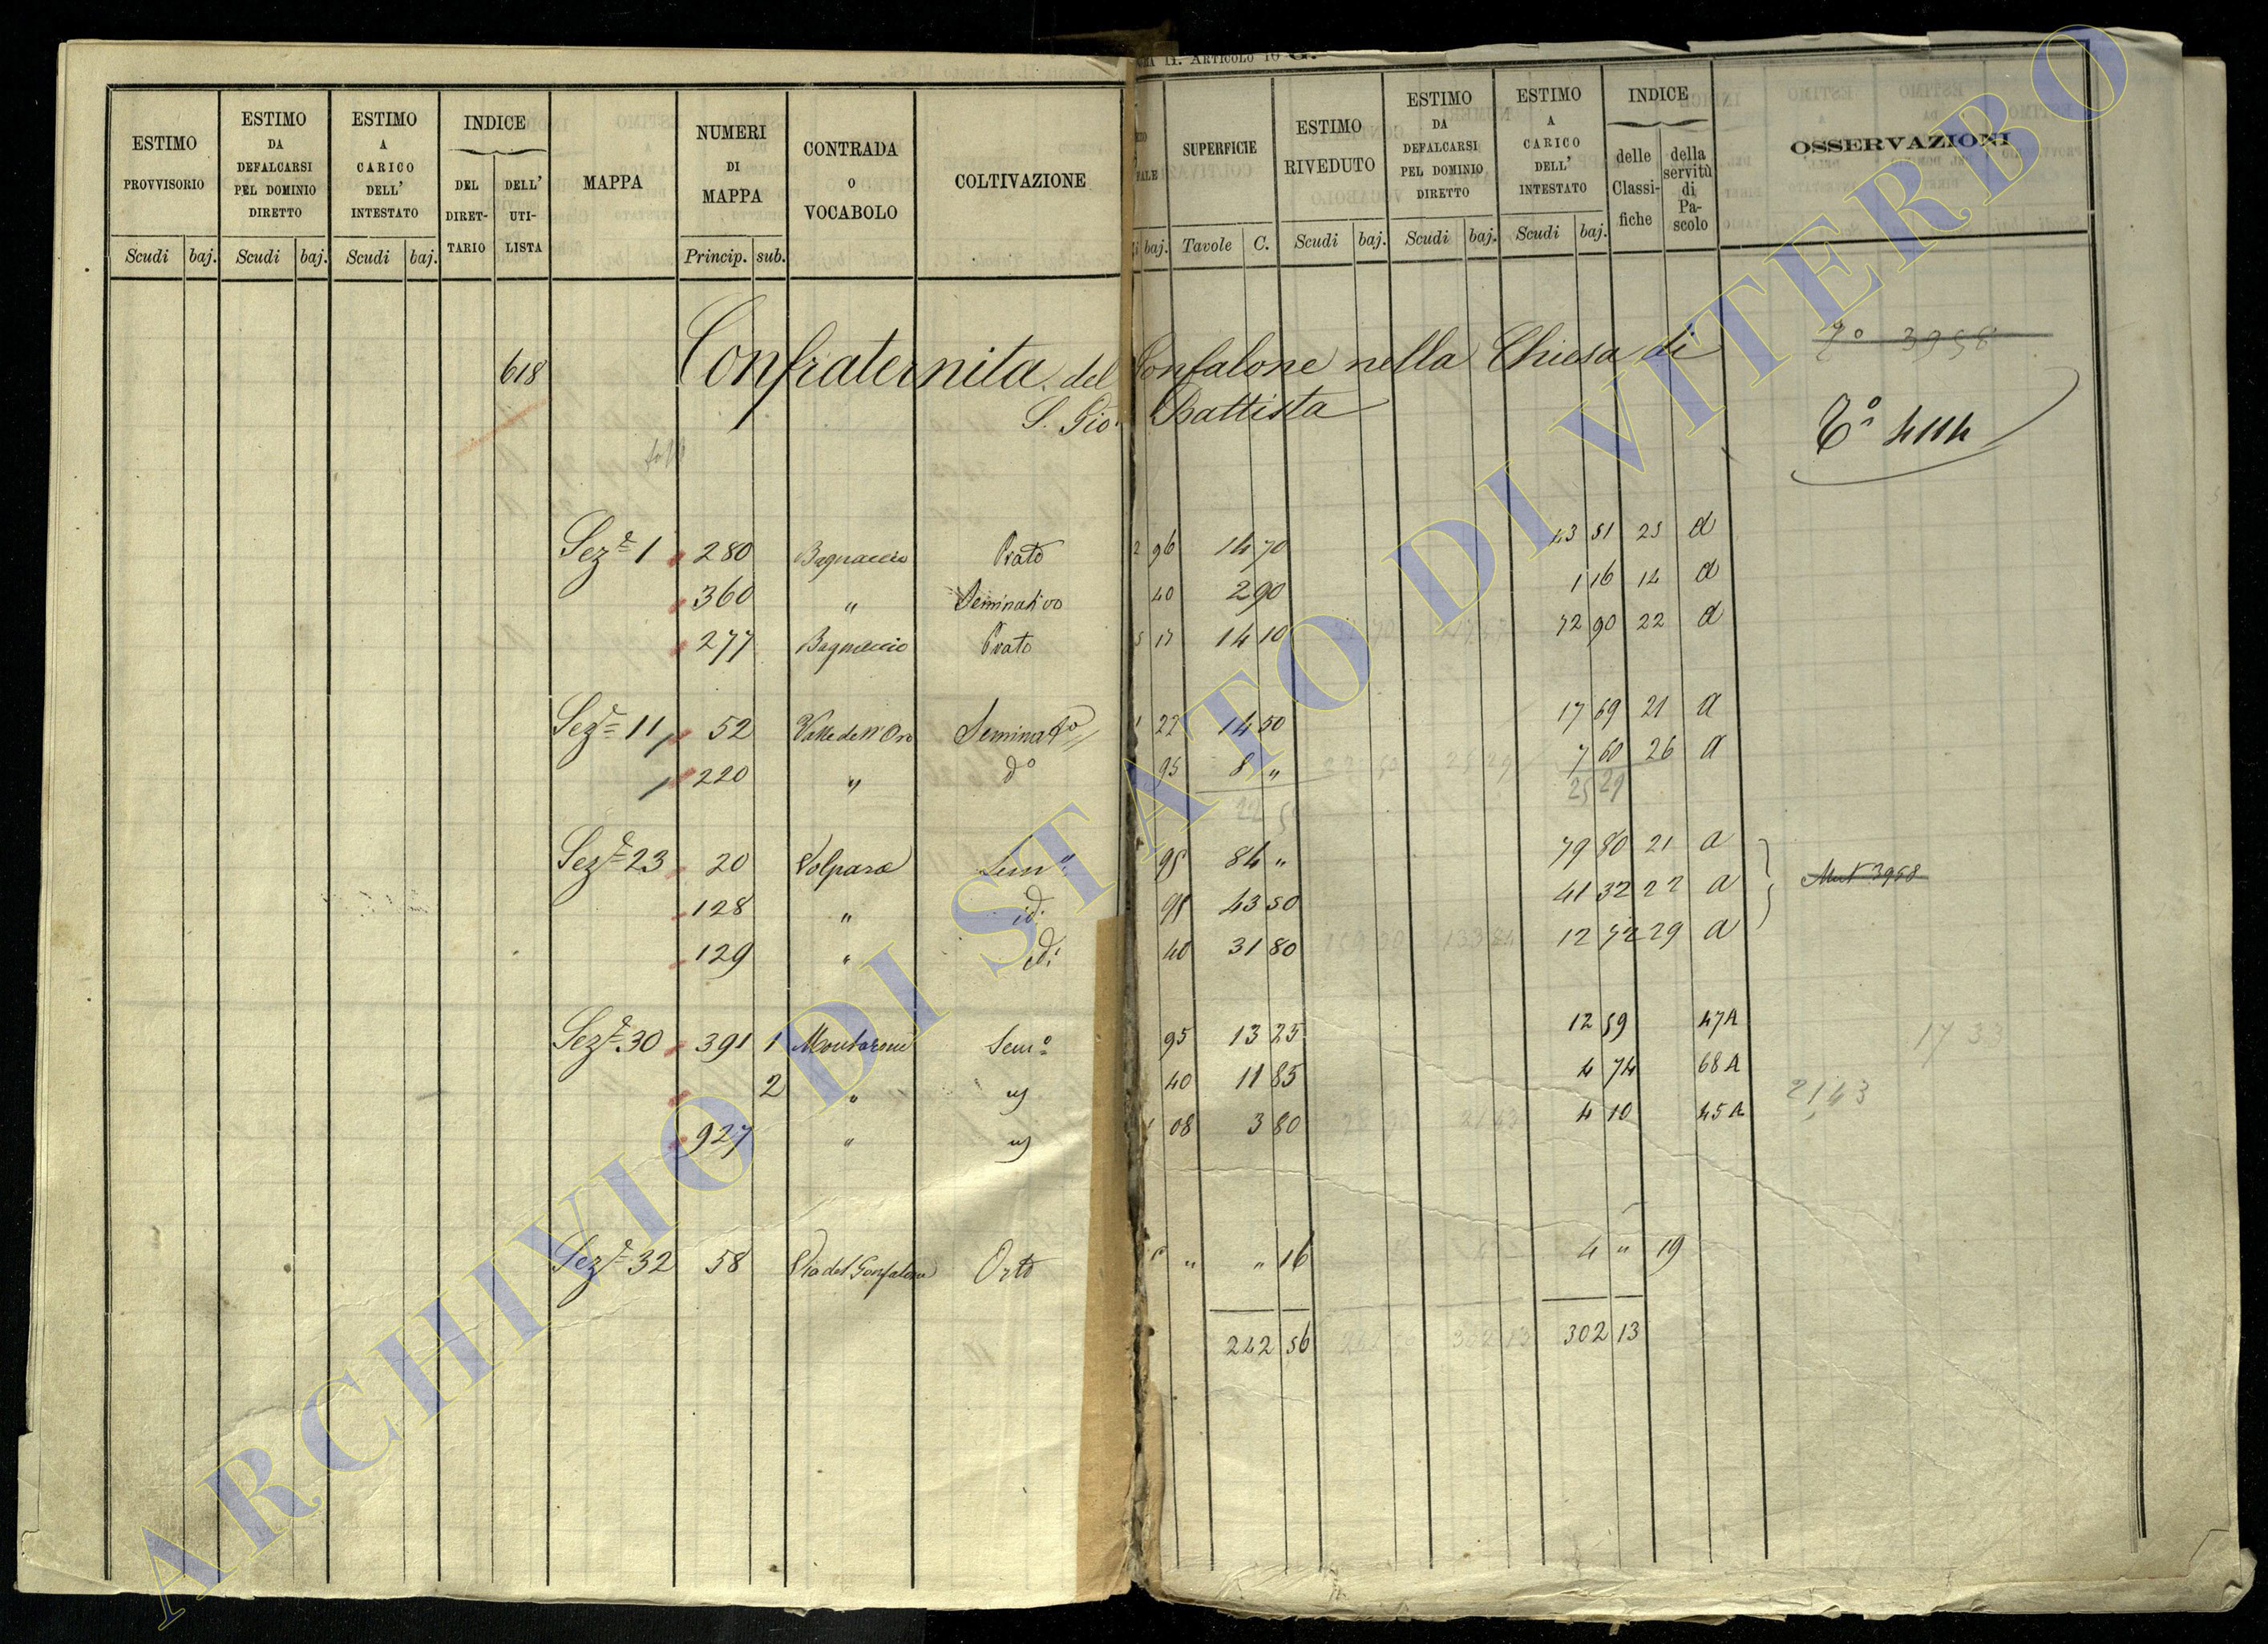 ARTICOLO 10 G.
ESTIMO PROVVISORIO Scudi baj.
ESTIMO DA DEFALCARSI PEL DOMINIO DIRETTO Scudi baj.
ESTIMO A CARICO DELL' INTESTATO Scudi baj.
INDICE DEL DIRET-TARIO DELL' UTI-LISTA
MAPPA
NUMERI DI MAPPA Princip. sub.
CONTRADA O VOCABOLO
COLTIVAZIONE
baj.
SUPERFICIE Tavole C.
ESTIMO RIVEDUTO Scudi baj.
ESTIMO DA DEFALCARSI PEL DOMINIO DIRETTO Scudi baj.
ESTIMO A CARICO DELL' INTESTATO Scudi baj.
INDICE delle Classi-fiche della servitù di Pa-scolo
OSSERVAZIONI
618 Confraternita del Gonfalone nella Chiesa di
S. Gio. Battista
3958
Sez.e 1 280 Bagnaccio Prato 2 96 14 70 43 51 23 a
360 " Seminativo 40 2 90 1 16 14 a
277 Bagnaccio Prato 5 17 14 10 72 90 22 a
Sez.e 11 52 Valle dell'Oro Seminato 1 22 14 50 17 69 21 a
220 " do 95 8 " 7 60 26 a
22 50 25 29
Sez.e 23 20 Volpara Sem.o 95 84 " 79 80 21 a
128 " id. 95 43 50 41 32 22 a
Mut 3958
129 " id. 40 31 80 12 72 29 a
Sez.e 30 391 1 Montarone Sem.o 95 13 25 12 59 47 A
2 " 40 11 85 4 74 68 A
21 43
927 " 1 08 3 80 4 10 45 A
Sez.e 32 58 Via del Gonfalone Orto " " 16 4 " 19
242 56 302 13
ARCHIVIO DI STATO DI VITERBO